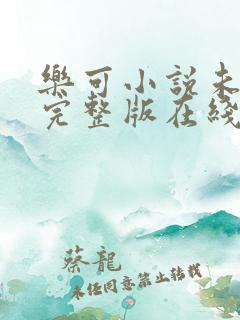 樂可小說未
完整版在綫
蔡龍
未经同意禁止转载